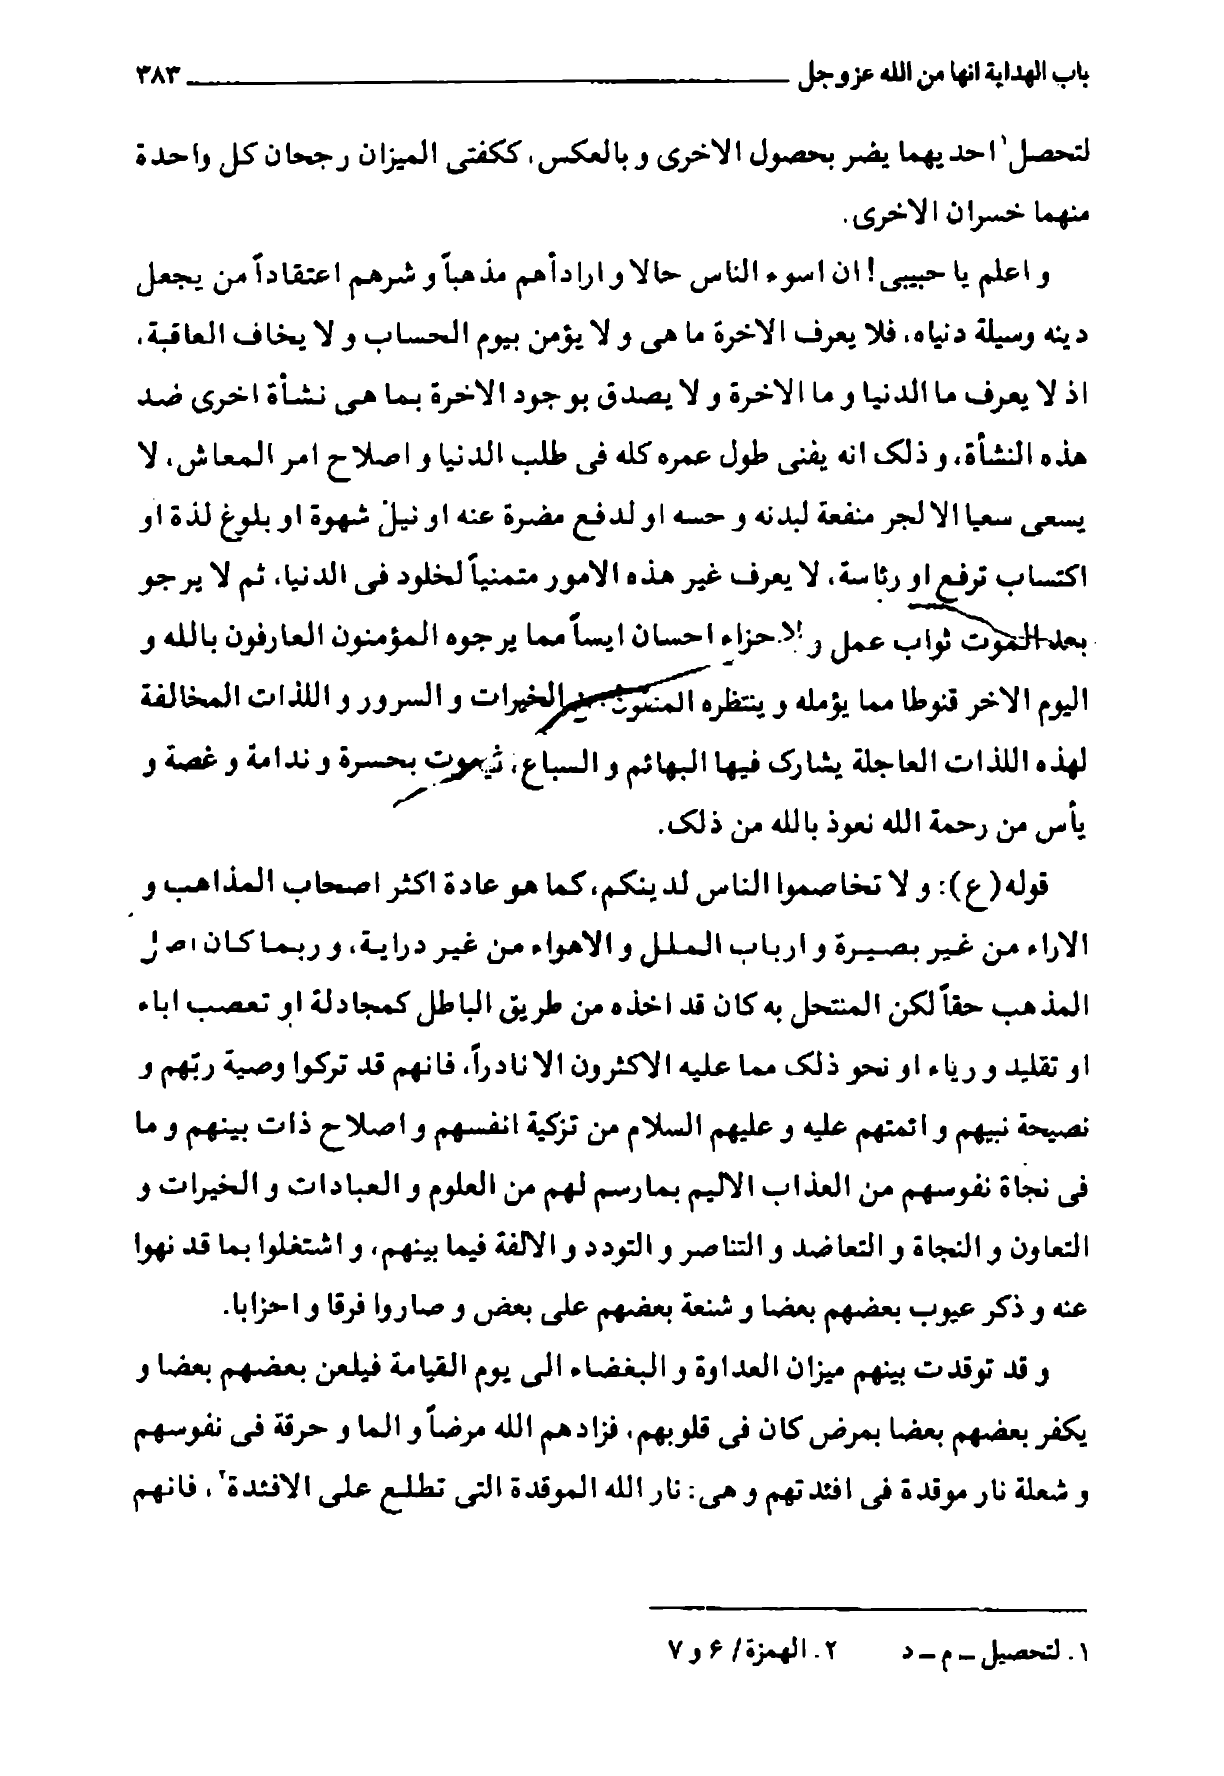 باب الهداية انها من الله عزوجل ٣٨٣
لتحصل١ احديهما يضر بحصول الاخرى و بالعكس، ككفتى الميزان رجحان كل واحدة
منهما خسران الاخرى.
و اعلم يا حبيبى! ان اسوء الناس حالا و ارادأهم مذهباً و شرهم اعتقاداً من يجعل
دينه وسيلة دنياه، فلا يعرف الاخرة ما هى و لا يؤمن بيوم الحساب و لا يخاف العاقبة،
اذ لا يعرف ما الدنيا و ما الاخرة و لا يصدق بوجود الاخرة بما هى نشأة اخرى ضد
هذه النشأة، و ذلك انه يفنى طول عمره كله فى طلب الدنيا و اصلاح امر المعاش، لا
يسعى سعيا الا لجر منفعة لبدنه و حسه او لدفع مضرة عنه او نيل شهوة او بلوغ لذة او
اكتساب ترفع او رئاسة، لا يعرف غير هذه الامور متمنياً لخلود فى الدنيا، ثم لا يرجو
بعد الموت ثواب عمل و لا جزاء احسان ايساً مما يرجوه المؤمنون العارفون بالله و
اليوم الاخر قنوطا مما يؤمله و ينتظره الخيرات و السرور و اللذات المخالفة
لهذه اللذات العاجلة يشارك فيها البهائم و السباع، بحسرة و ندامة و غصة و
يأس من رحمة الله نعوذ بالله من ذلك.
قوله(ع): و لا تخاصموا الناس لدينكم، كما هو عادة اكثر اصحاب المذاهب و
الاراء من غير بصيرة و ارباب الملل و الاهواء من غير دراية، و ربما كان اصل
المذهب حقاً لكن المنتحل به كان قد اخذه من طريق الباطل كمجادلة او تعصب اباء
او تقليد و رياء او نحو ذلك مما عليه الاكثرون الا نادراً، فانهم قد تركوا وصية ربّهم و
نصيحة نبيهم و ائمتهم عليه و عليهم السلام من تزكية انفسهم و اصلاح ذات بينهم و ما
فى نجاة نفوسهم من العذاب الاليم بمارسم لهم من العلوم و العبادات و الخيرات و
التعاون و النجاة و التعاضد و التناصر و التودد و الالفة فيما بينهم، و اشتغلوا بما قد نهوا
عنه و ذكر عيوب بعضهم بعضا و شنعة بعضهم على بعض و صاروا فرقا و احزابا.
و قد توقدت بينهم ميزان العداوة و البغضاء الى يوم القيامة فيلعن بعضهم بعضا و
يكفر بعضهم بعضا بمرض كان فى قلوبهم، فزادهم الله مرضاً و الما و حرقة فى نفوسهم
و شعلة نار موقدة فى افئدتهم و هى: نار الله الموقدة التى تطلع على الافئدة٢، فانهم
١. لتحصيل ــ م ــ د ٢. الهمزة/ ۶ و ٧